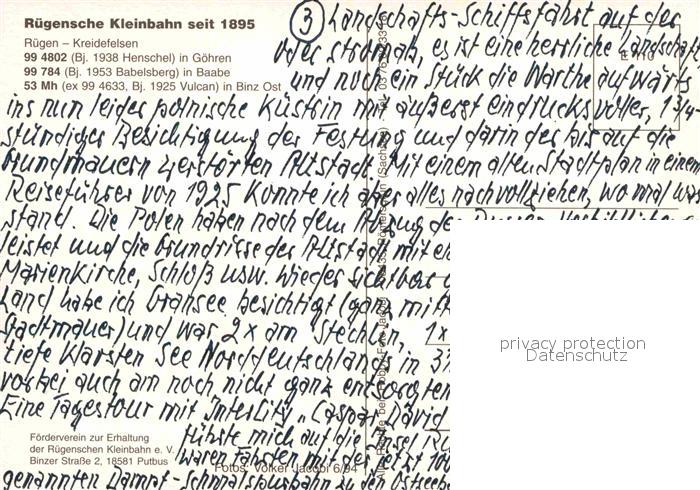 Rügensche Kleinbahn seit 1895
Rügen – Kreidefelsen
99 4802 (Bj. 1938 Henschel) in Göhren
99 784 (Bj. 1953 Babelsberg) in Baabe
53 Mh (ex 99 4633, Bj. 1925 Vulcan) in Binz Ost
③ Landschafts-Schiffsfahrt auf der
oder stromab, es ist eine herrliche Landschaft,
und noch ein Stück die Warthe aufwärts
ins nun leider polnische Küstrin mit äußerst eindrucksvoller, 1 3/4
stündiger Besichtigung der Festung und darin der bis auf die
Grundmauern zerstörten Altstadt. Mit einem alten Stadtplan in einem
Reiseführer von 1925 konnte ich aber alles nachvollziehen, wo mal was
stand. Die Polen haben nach dem Abzug der Russen
leistet und die Grundrisse der Altstadt mit
Marienkirche, Schloß usw. wieder sichtbar
Land habe ich Gransee besichtigt (ganz mitt
Stadtmauer) und war 2x am Stechlin, 1x
tiefe klarsten See Norddeutschlands in
vorbei auch am noch nicht ganz entsorgten
Eine Tagestour mit InterCity "Caspar David
führte mich auf die Insel
waren Fahrten mit der jetzt 100
genannten Dampf-Schmalspurbahn zu den Ostseeb
Förderverein zur Erhaltung
der Rügenschen Kleinbahn e. V.
Binzer Straße 2, 18581 Putbus
Fotos: Volker Jacobi 6/94
privacy protection
Datenschutz